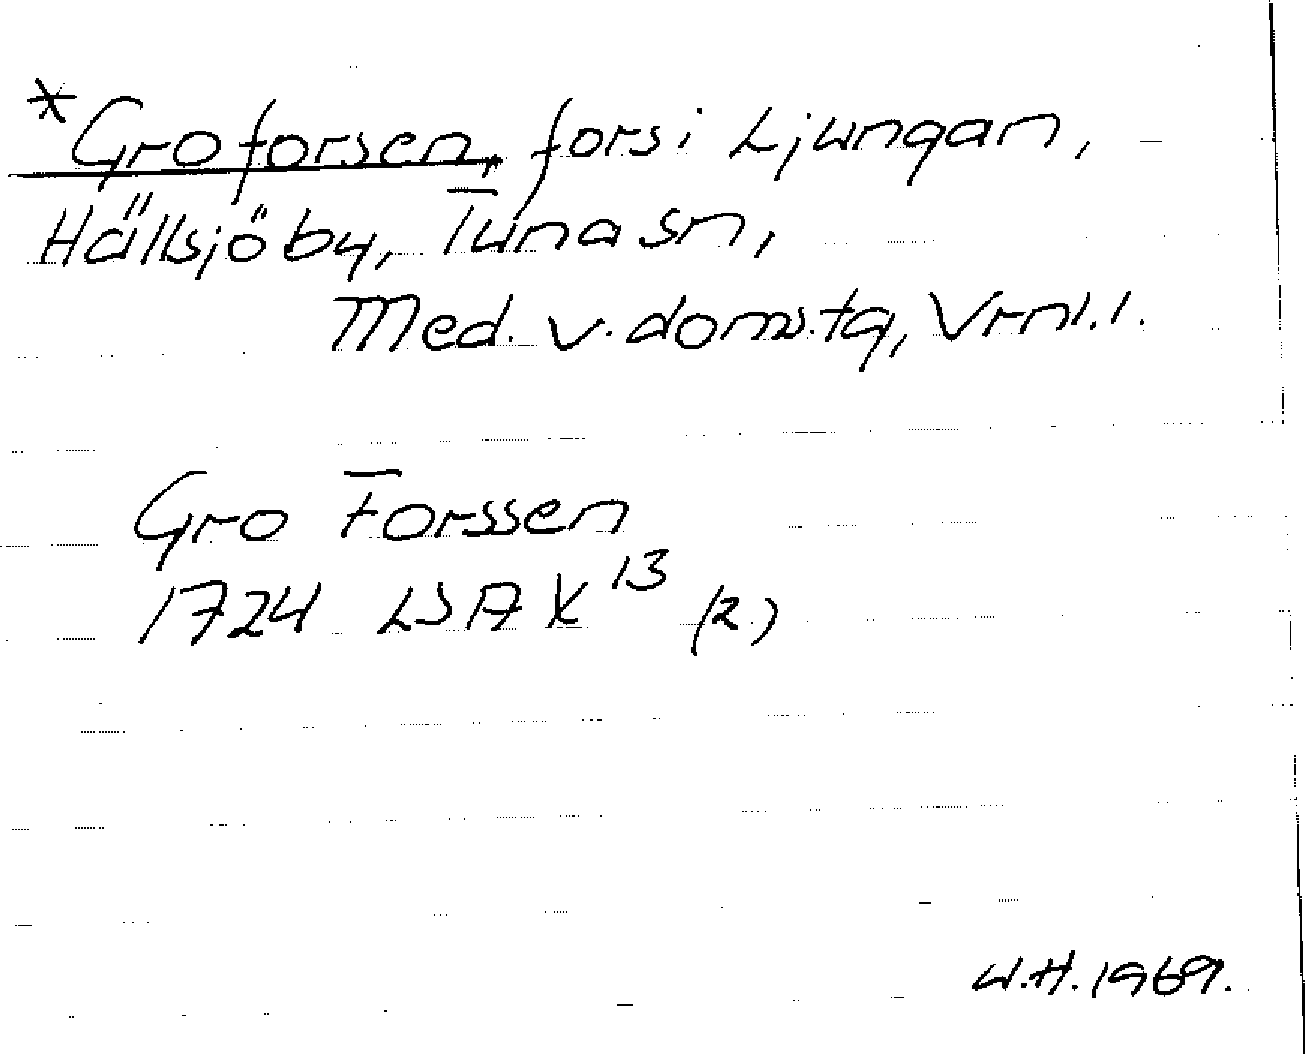 *Groforsen, fors i Ljungan,
Hällsjö by, Tuna sn,
Med. v. doms.tg, Vrnl. l.
Gro Forssen
1724 LSA X 13 (2)
W.H. 1969.